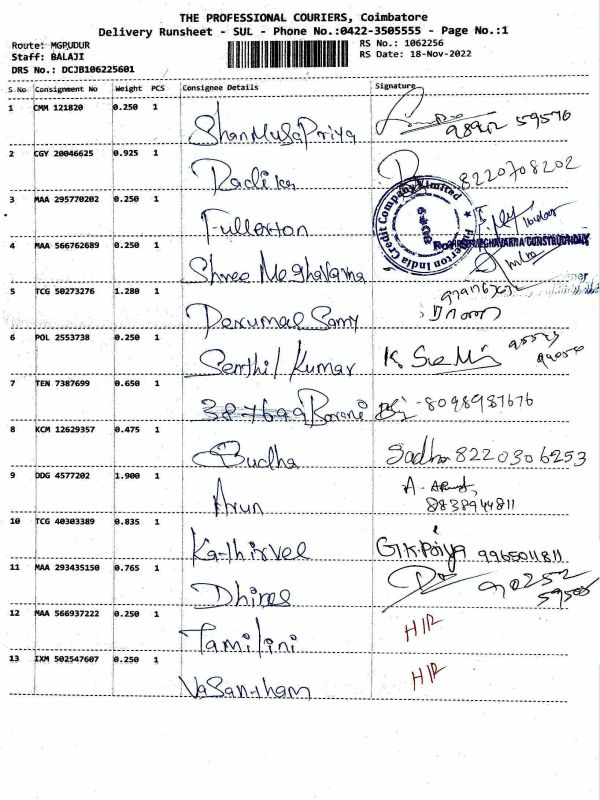 THE PROFESSIONAL COURIERS, Coimbatore
Delivery Runsheet - SUL - Phone No.:0422-3505555 - Page No.:1
Route: MGPUDUR RS No.: 1062256
Staff: BALAJI RS Date: 18-Nov-2022
DRS No.: DCJB106225601
S No Consignment No Weight PCS Consignee Details Signature
1 CMM 121820 0.250 1 ShanMugaPriya 59576
2 CGY 20046625 0.925 1 Radika 8220708202
3 MAA 295770202 0.250 1 Fullerton
Fullerton India Credit Company Limited
4 MAA 566762689 0.250 1 Shree Meghavarna
5 TCG 50273276 1.280 1 Perumal Samy
6 POL 2553738 0.250 1 Senthil Kumar
7 TEN 7387699 0.650 1 387699 Barani 8098987676
8 KCM 12629357 0.475 1 Budha Sadha 8220306253
9 DDG 4577202 1.900 1 Arun A.
8838944811
10 TCG 40303389 0.835 1 Kathirvel 9965011811
11 MAA 293435150 0.765 1 Dhires 90252
59505
12 MAA 566937222 0.250 1 Tamilini HIR
13 IXM 502547607 0.250 1 Vasantham HIR